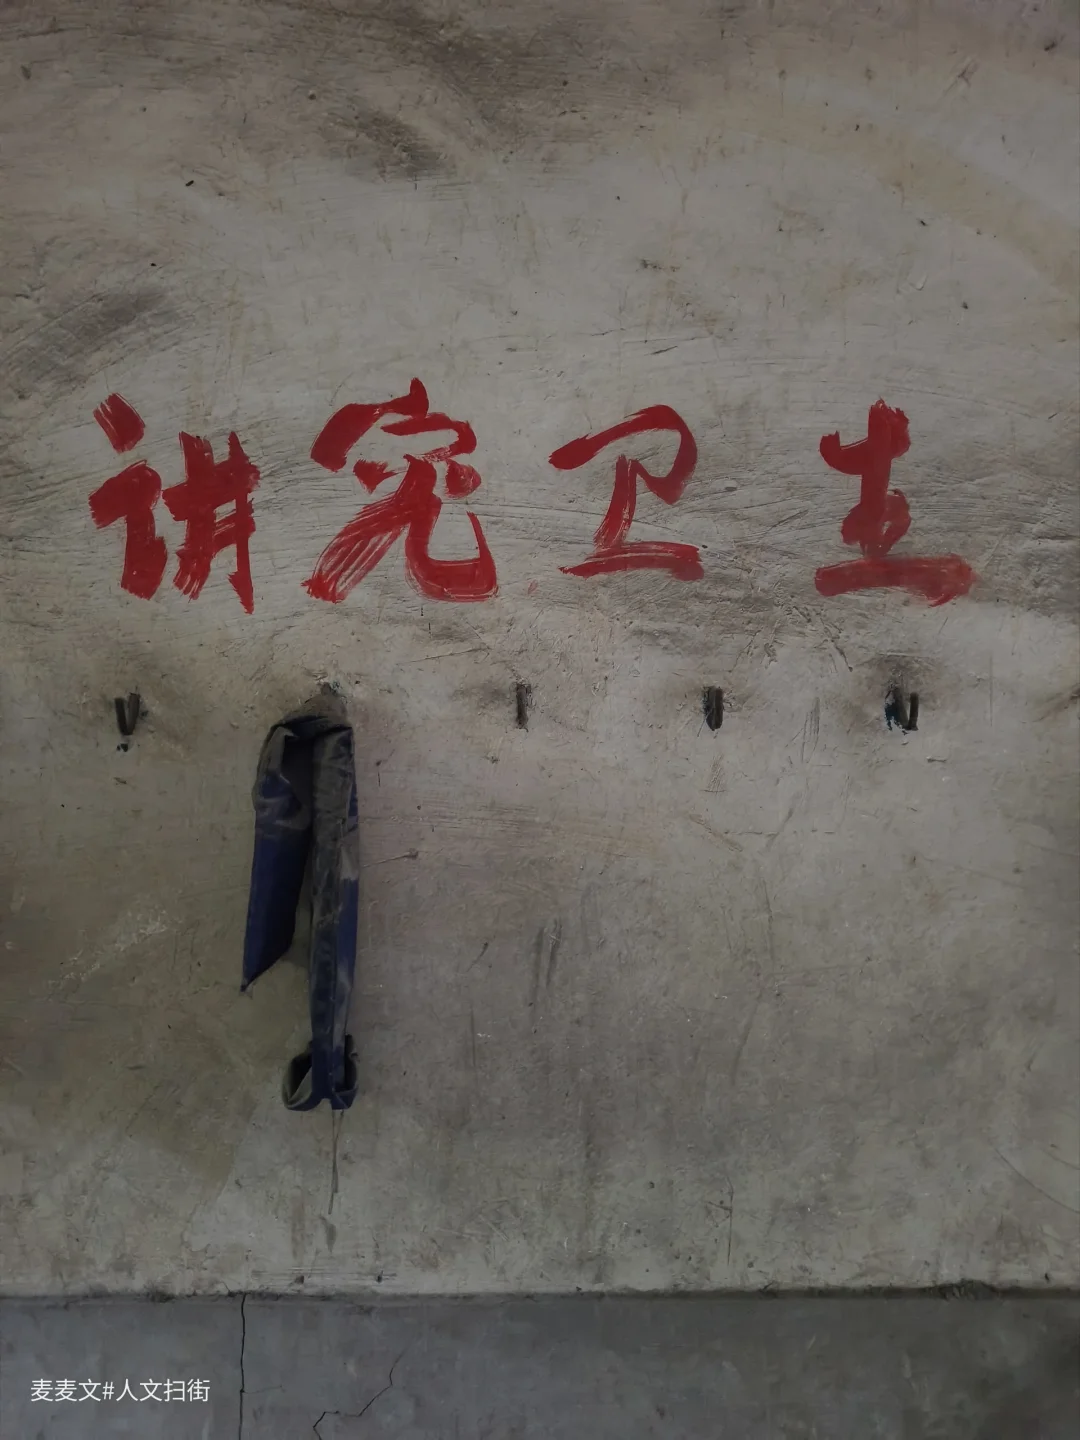 讲究卫生
麦麦文#人文扫街